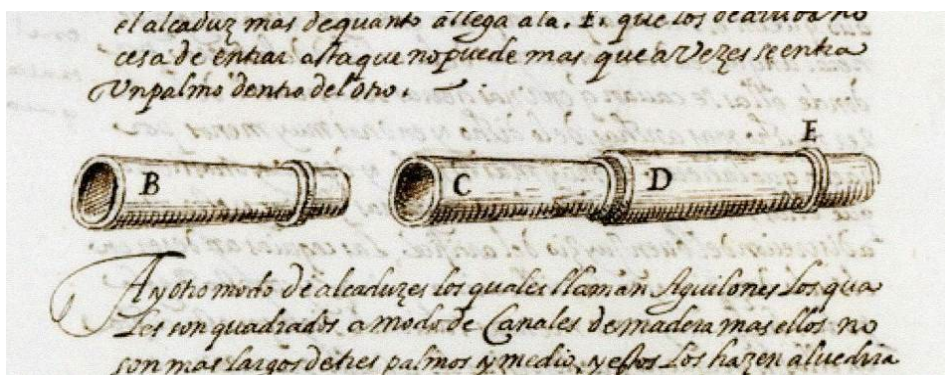 el alcaduz mas de quanto allega ala. E. que los de arriba no
cesa de entrar asta que no puede mas que a vezes se entra
Un palmo dentro del otro.
B C D E
Ay otro modo de alcaduzes los quales llaman Aguilones Los qua
Les son quadrados a modo de Canales de madera mas ellos no
son mas largos de tres palmos y medio, y estos Los hazen aluedria